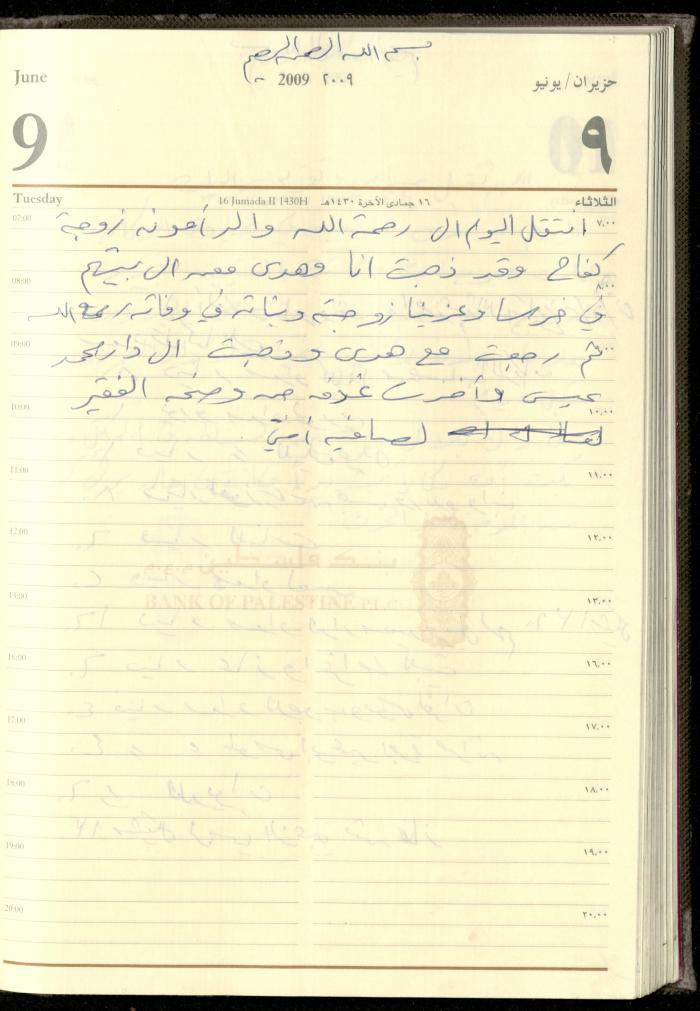 بسم الله الرحمن الرحيم
June
2009 ٢٠٠٩
حزيران / يونيو
9
٩
Tuesday
16 Jumada II 1430H
١٦ جمادى الآخرة ١٤٣٠هـ
الثلاثاء
07:00 انتقل اليوم الى رحمة الله والد أمونه زوجة ٧،٠٠
كفاح وقد ذهبت انا وهدى معه الى بيتهم
08:00 ٨،٠٠
في خرسا وعزينا زوجته وبناته في وفاته رحمه الله
09:00 ثم رجعت مع هدى وذهبت الى دار محمد ٩،٠٠
عيسى وأخذت من وصفه الفقير
10:00 ١٠،٠٠
لصافيه أختي
11:00 ١١،٠٠
12:00 ١٢،٠٠
بنك فلسطين
BANK OF PALESTINE PLC
13:00 ١٣،٠٠
16:00 ١٦،٠٠
17:00 ١٧،٠٠
18:00 ١٨،٠٠
19:00 ١٩،٠٠
20:00 ٢٠،٠٠